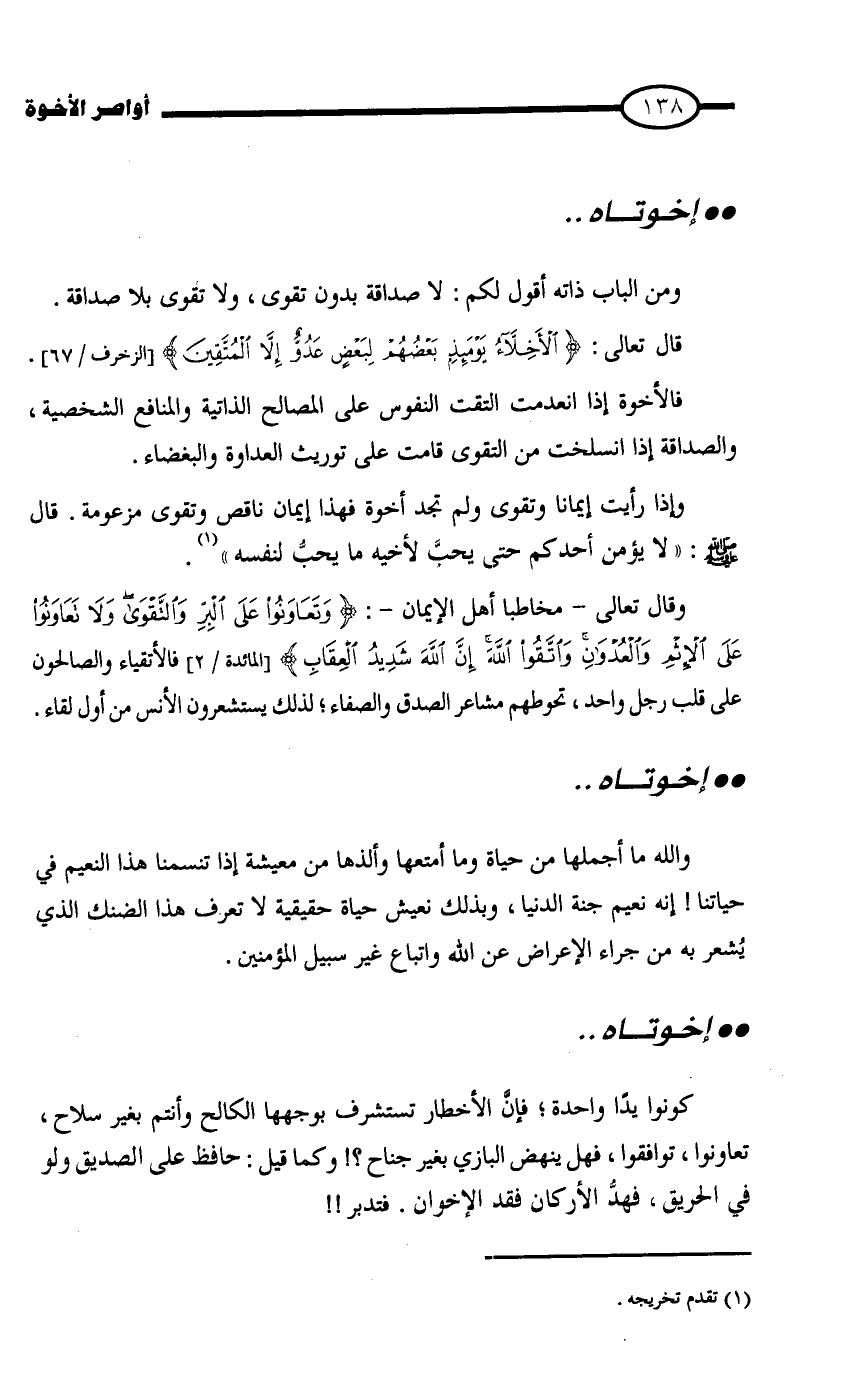 أواصر الأخوة ١٣٨
●● إخـوتـــاه ..
ومن الباب ذاته أقول لكم : لا صداقة بدون تقوى ، ولا تقوى بلا صداقة .
قال تعالى : ﴿ ٱلْأَخِلَّآءُ يَوْمَئِذٍۭ بَعْضُهُمْ لِبَعْضٍ عَدُوٌّ إِلَّا ٱلْمُتَّقِينَ ﴾ [الزخرف / ٦٧] .
فالأخوة إذا انعدمت التقت النفوس على المصالح الذاتية والمنافع الشخصية ،
والصداقة إذا انسلخت من التقوى قامت على توريث العداوة والبغضاء .
وإذا رأيت إيمانا وتقوى ولم تجد أخوة فهذا إيمان ناقص وتقوى مزعومة . قال
ﷺ : « لا يؤمن أحدكم حتى يحبَّ لأخيه ما يحبُّ لنفسه »(١) .
وقال تعالى – مخاطبا أهل الإيمان – : ﴿ وَتَعَاوَنُوا۟ عَلَى ٱلْبِرِّ وَٱلتَّقْوَىٰۖ وَلَا تَعَاوَنُوا۟
عَلَى ٱلْإِثْمِ وَٱلْعُدْوَٰنِۚ وَٱتَّقُوا۟ ٱللَّهَۖ إِنَّ ٱللَّهَ شَدِيدُ ٱلْعِقَابِ ﴾ [المائدة / ٢] فالأتقياء والصالحون
على قلب رجل واحد ، تحوطهم مشاعر الصدق والصفاء ؛ لذلك يستشعرون الأنس من أول لقاء .
●● إخـوتـــاه ..
والله ما أجملها من حياة وما أمتعها وألذها من معيشة إذا تنسمنا هذا النعيم في
حياتنا ! إنه نعيم جنة الدنيا ، وبذلك نعيش حياة حقيقية لا تعرف هذا الضنك الذي
يُشعر به من جراء الإعراض عن الله واتباع غير سبيل المؤمنين .
●● إخـوتـــاه ..
كونوا يدًا واحدة ؛ فإنَّ الأخطار تستشرف بوجهها الكالح وأنتم بغير سلاح ،
تعاونوا ، توافقوا ، فهل ينهض البازي بغير جناح ؟! وكما قيل : حافظ على الصديق ولو
في الحريق ، فهدُّ الأركان فقد الإخوان . فتدبر !!
(١) تقدم تخريجه .